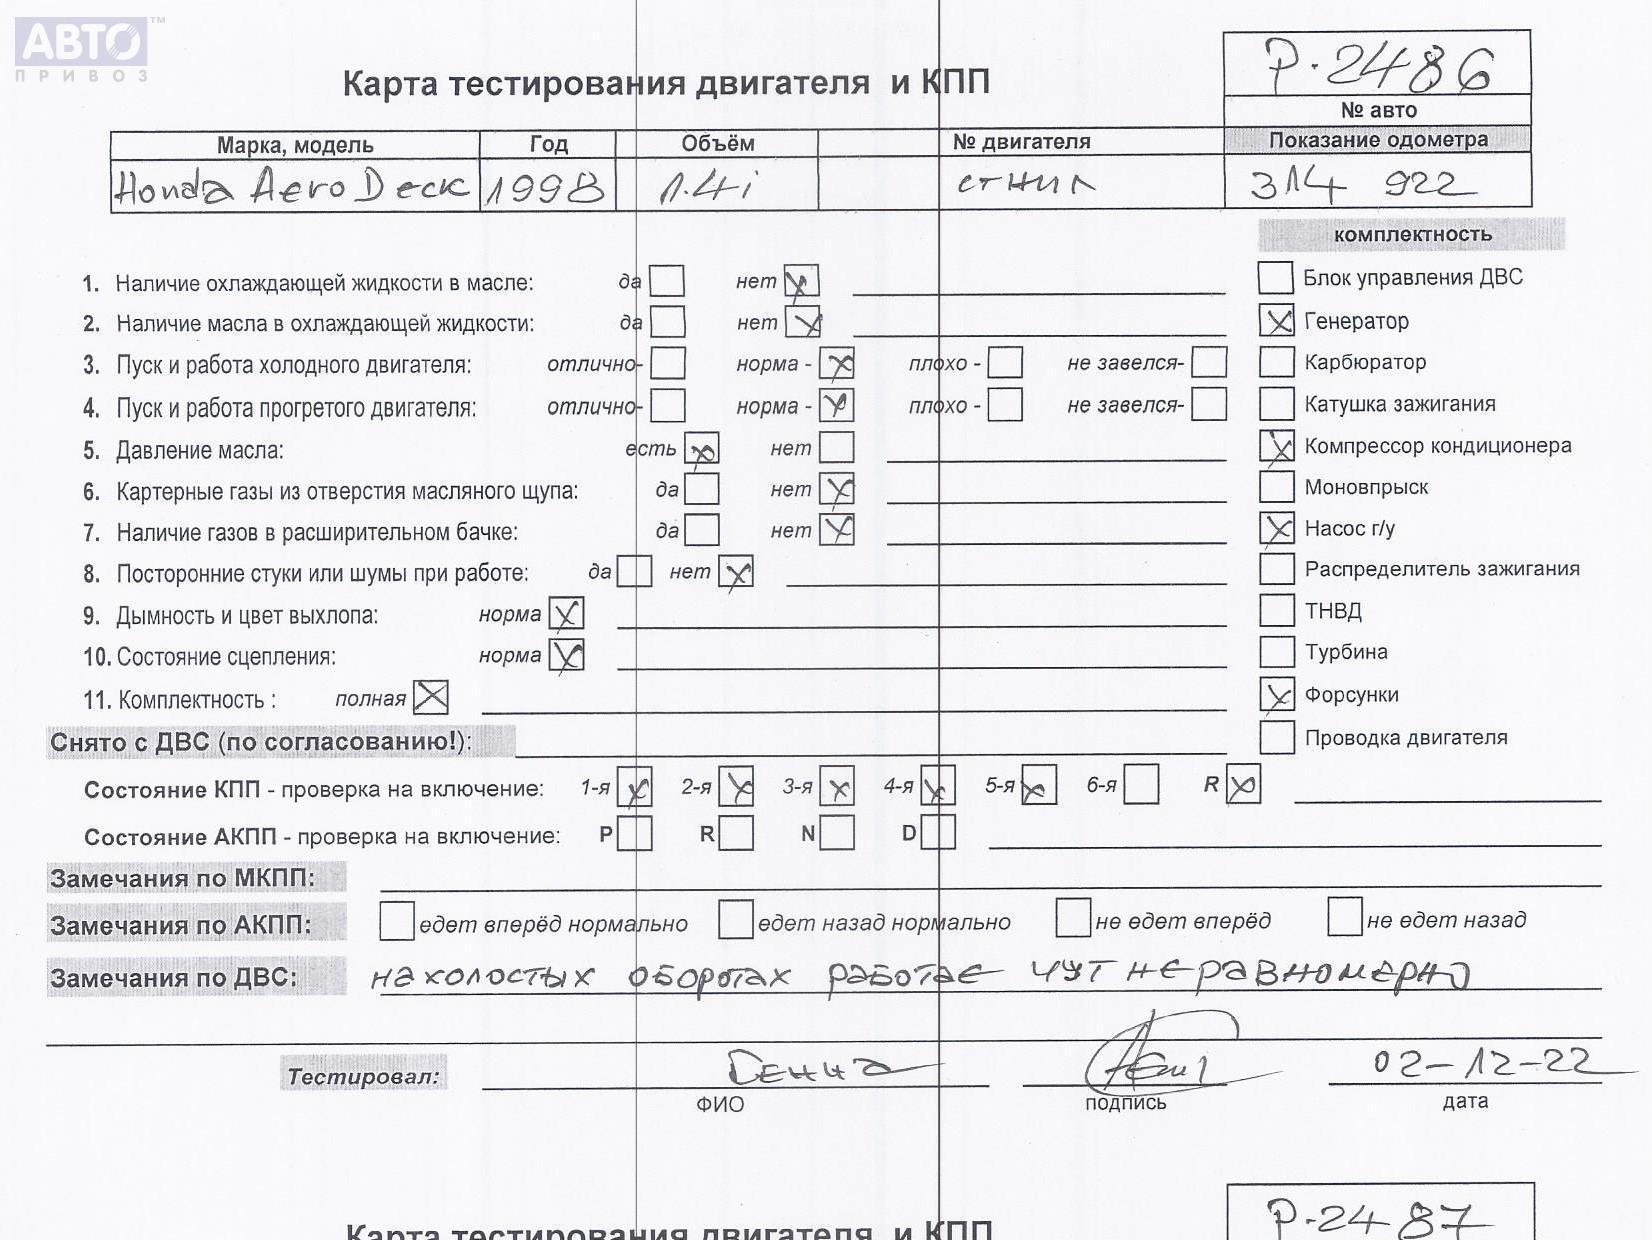 АВТО™
ПРИВОЗ
Карта тестирования двигателя и КПП
P-2486
№ авто
Марка, модель Год Объём № двигателя Показание одометра
Honda AeroDeck 1998 1.4i сгнил 314 922
комплектность
1. Наличие охлаждающей жидкости в масле: да нет Блок управления ДВС
2. Наличие масла в охлаждающей жидкости: да нет Генератор
3. Пуск и работа холодного двигателя: отлично- норма - плохо - не завелся- Карбюратор
4. Пуск и работа прогретого двигателя: отлично- норма - плохо - не завелся- Катушка зажигания
5. Давление масла: есть нет Компрессор кондиционера
6. Картерные газы из отверстия масляного щупа: да нет Моновпрыск
7. Наличие газов в расширительном бачке: да нет Насос г/у
8. Посторонние стуки или шумы при работе: да нет Распределитель зажигания
9. Дымность и цвет выхлопа: норма ТНВД
10. Состояние сцепления: норма Турбина
11. Комплектность : полная Форсунки
Снято с ДВС (по согласованию!): Проводка двигателя
Состояние КПП - проверка на включение: 1-я 2-я 3-я 4-я 5-я 6-я R
Состояние АКПП - проверка на включение: P R N D
Замечания по МКПП:
Замечания по АКПП: едет вперёд нормально едет назад нормально не едет вперёд не едет назад
Замечания по ДВС: на холостых оборотах работае чут неравномерно
Тестировал: Генна 02-12-22
ФИО подпись дата
P-2487
Карта тестирования двигателя и КПП